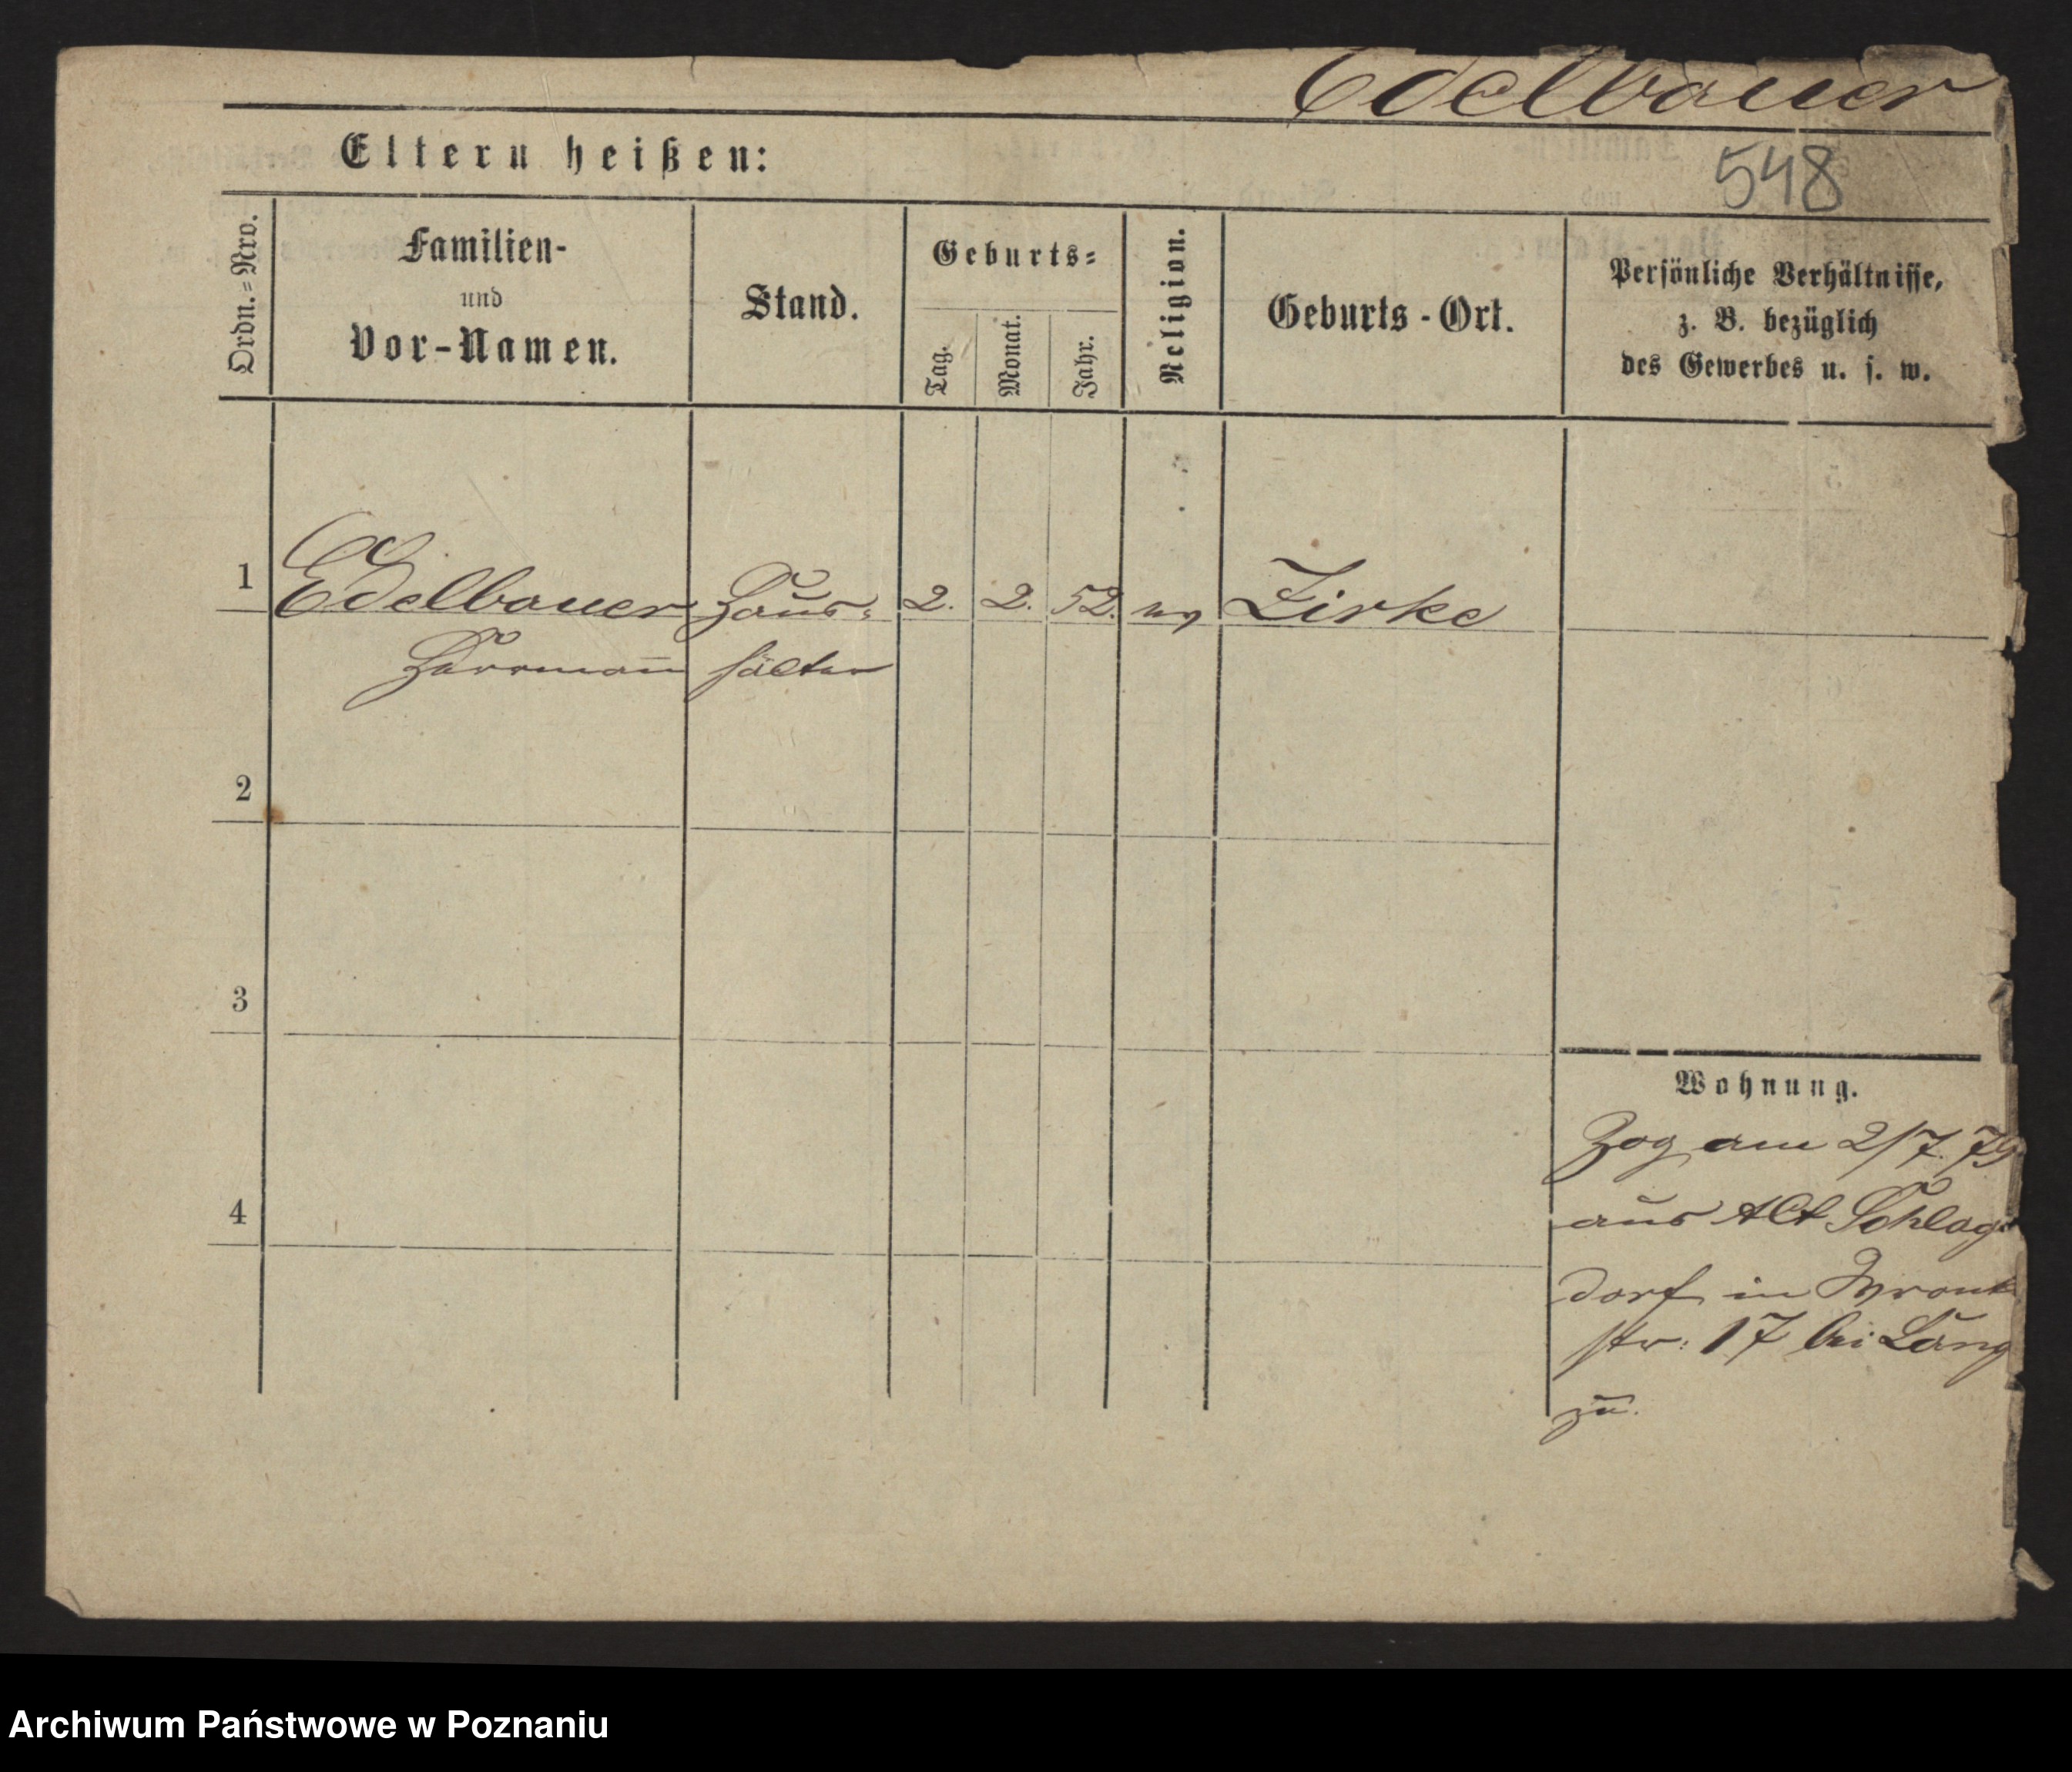 Edelbauer
Eltern heißen:
548
Ordn.=Nro.
Familien-
und
Vor-Namen.
Stand.
Geburts=
Tag.
Monat.
Jahr.
Religion.
Geburts-Ort.
Persönliche Verhältnisse,
z. B. bezüglich
des Gewerbes u. s. w.
1
Edelbauer
Herrmann
Haus=
hälter
2.
2.
52.
ev
Zirke
2
3
4
Wohnung.
Zog am 2/7. 79
aus Alt Schlag
dorf in Wronk
str: 17 bei Lang
zu.
Archiwum Państwowe w Poznaniu